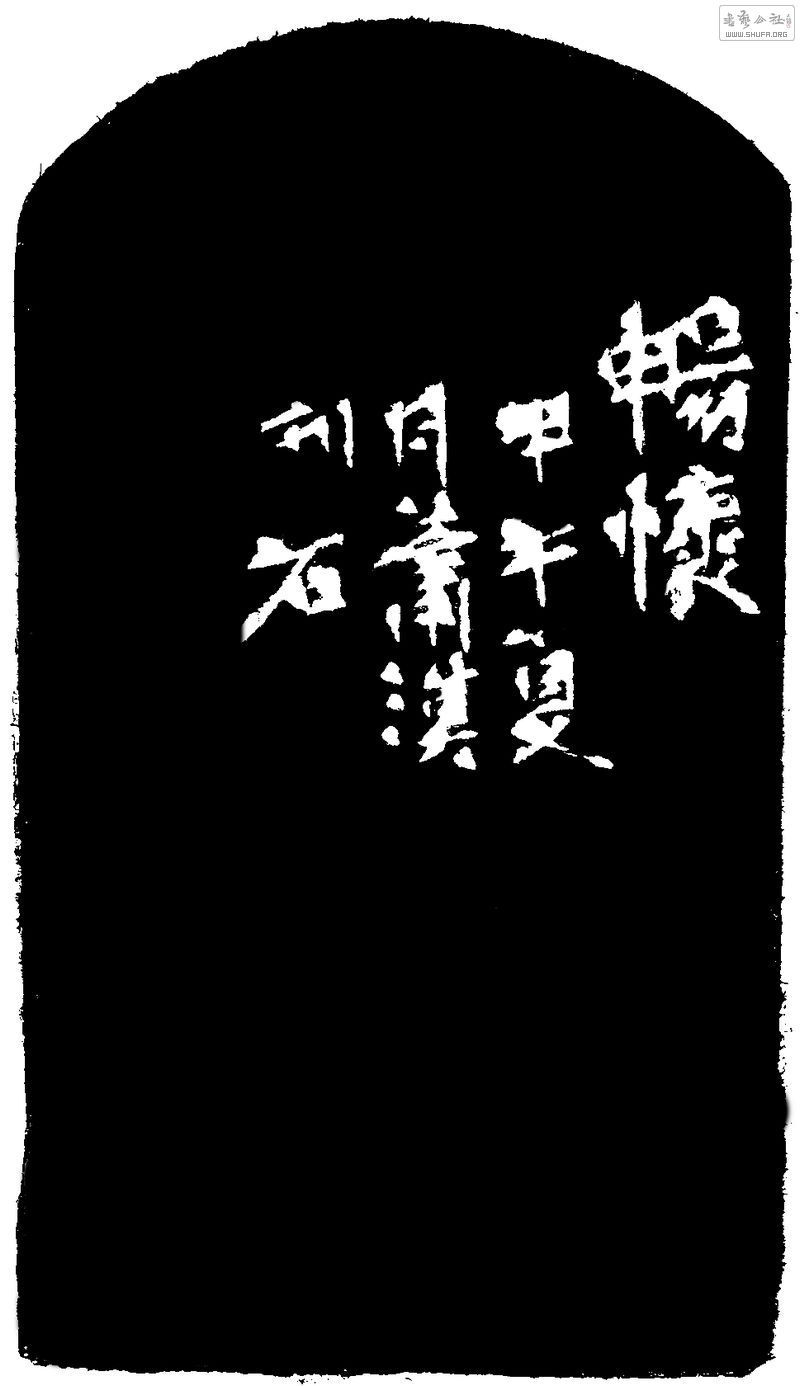 暢懷
甲午夏
月蕭漢
刊石
書藝公社
WWW.SHUFA.ORG